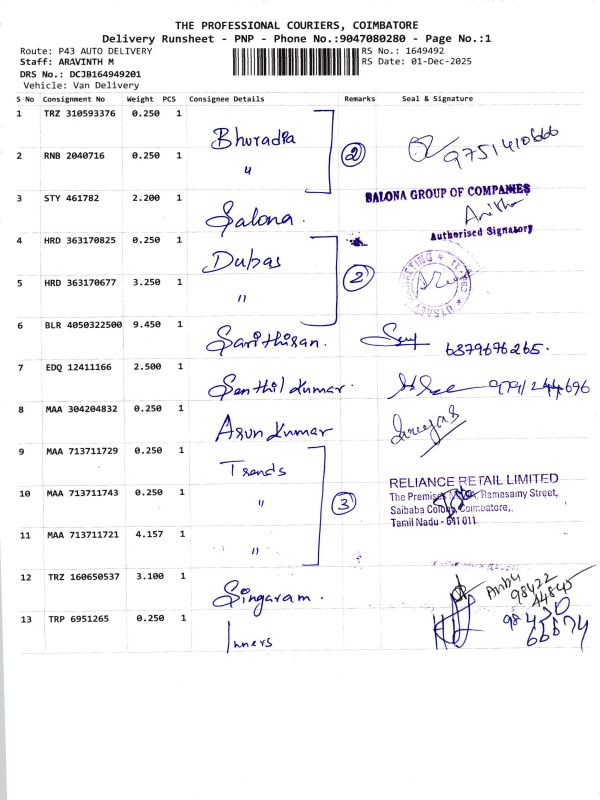 THE PROFESSIONAL COURIERS, COIMBATORE
Delivery Runsheet - PNP - Phone No.:9047080280 - Page No.:1
Route: P43 AUTO DELIVERY
RS No.: 1649492
Staff: ARAVINTH M
RS Date: 01-Dec-2025
DRS No.: DCJB164949201
Vehicle: Van Delivery
S No Consignment No Weight PCS Consignee Details Remarks Seal & Signature
1 TRZ 310593376 0.250 1 Bhuradia
2 RNB 2040716 0.250 1 " 2 9751410666
3 STY 461782 2.200 1 Salona.
SALONA GROUP OF COMPANIES
Authorised Signatory
4 HRD 363170825 0.250 1 Dubas
5 HRD 363170677 3.250 1 " 2
6 BLR 4050322500 9.450 1 Sarithiran. 6379676265.
7 EDQ 12411166 2.500 1 Senthil kumar.
8 MAA 304204832 0.250 1 Arun kumar
9 MAA 713711729 0.250 1 Trends
10 MAA 713711743 0.250 1 " 3
RELIANCE RETAIL LIMITED
The Premises Ramasamy Street,
Saibaba Colony, Coimbatore,
Tamil Nadu - 641 011
11 MAA 713711721 4.157 1 "
12 TRZ 160650537 3.100 1 Singaram.
Anbu
98422
44845
13 TRP 6951265 0.250 1 Inners
98430
66674